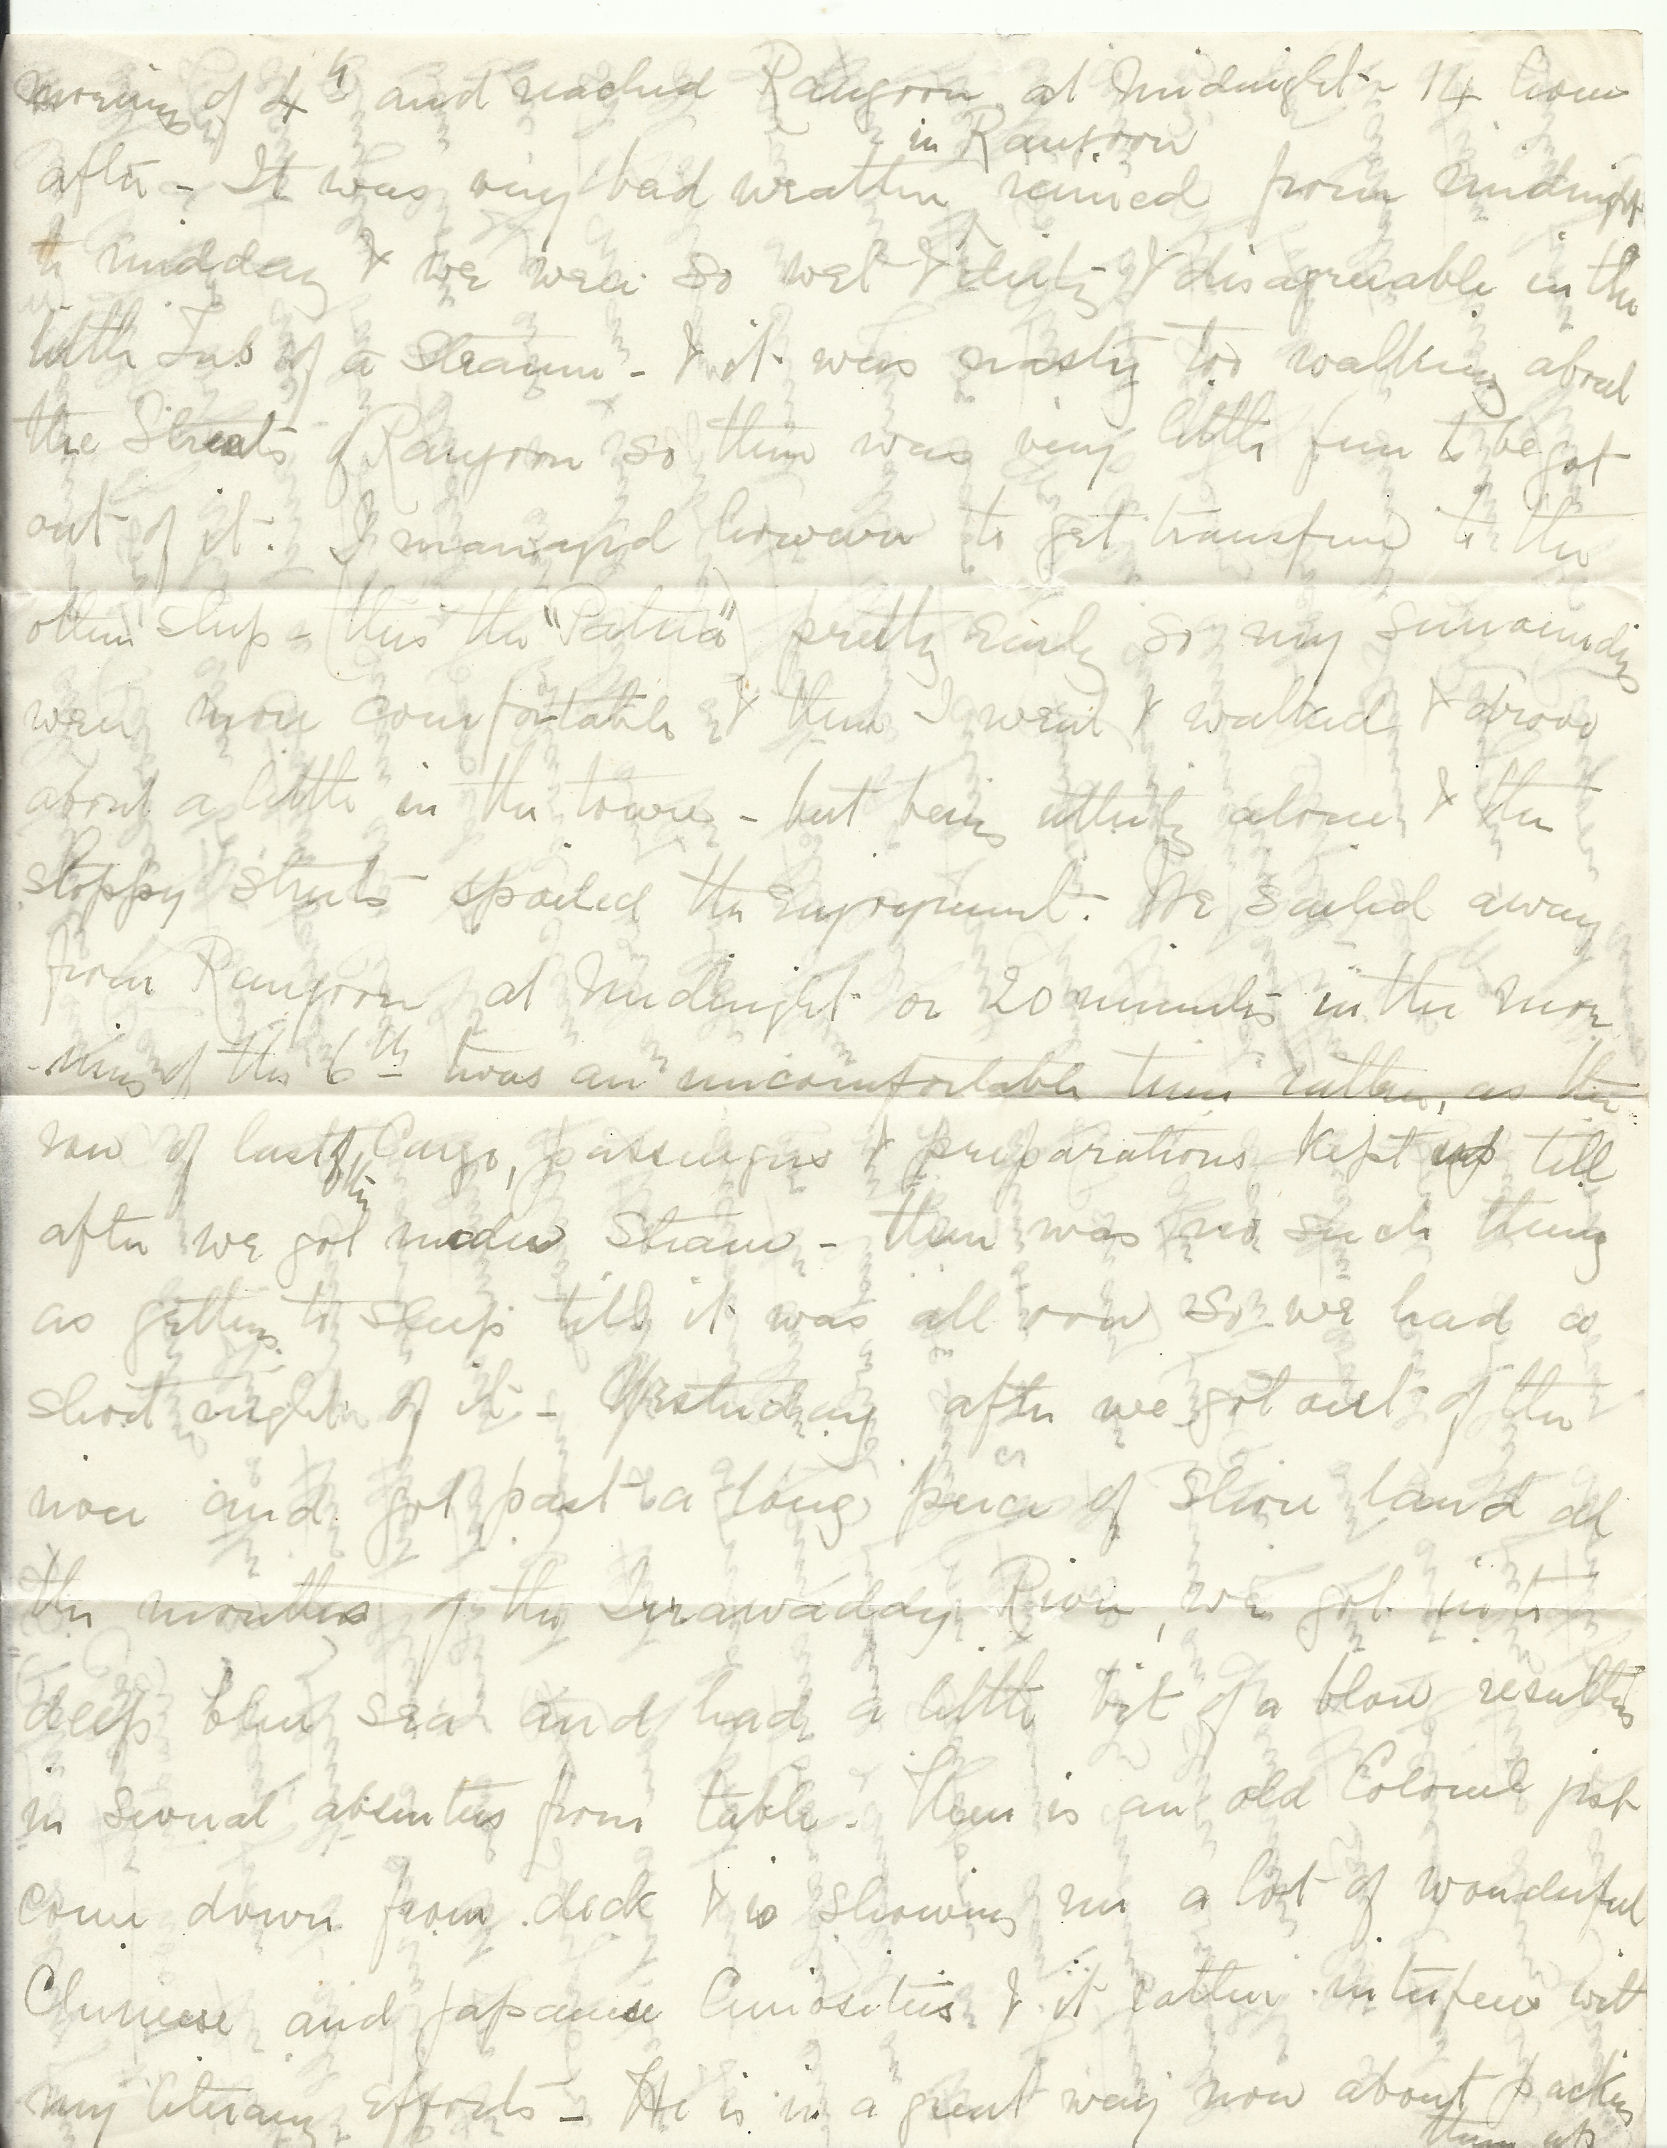 morning of 4th and reached Rangoon at Midnight - 14 hours
in Rangoon
after - It was very bad weather rained from midnight
to midday & we were so wet & dirty & disagreeable in the
little Tub of a Steamer - & it was nasty too walking about
the Streets of Rangoon so there was very little fun to be got
out of it. I managed however to get transferred to the
other ship - this the "Patna" pretty early so my surroundings
were more comfortable & then I went & walked & drove
about a little in the town - but being utterly alone & the
sloppy streets spoiled the enjoyment. We sailed away
from Rangoon at Midnight or 20 minutes in the mor
-ning of the 6th twas an uncomfortable time rather, as the
row of last of the Cargo, passengers & preparations kept up till
after we got under Steam - there was no such thing
as getting to sleep till it was all over so we had a
short night of it - Yesterday after we got out of the
river and got past a long piece of Shore land at
the mouths of the Irrawaddy River, we got into
deep blue sea and had a little bit of a blow resulting
in several absentees from table. There is an old Colonel just
come down from deck & is showing me a lot of wonderful
Chinese and Japanese Curiosities & it rather interferes with
my literary efforts - He is in a great way now about packing
them up